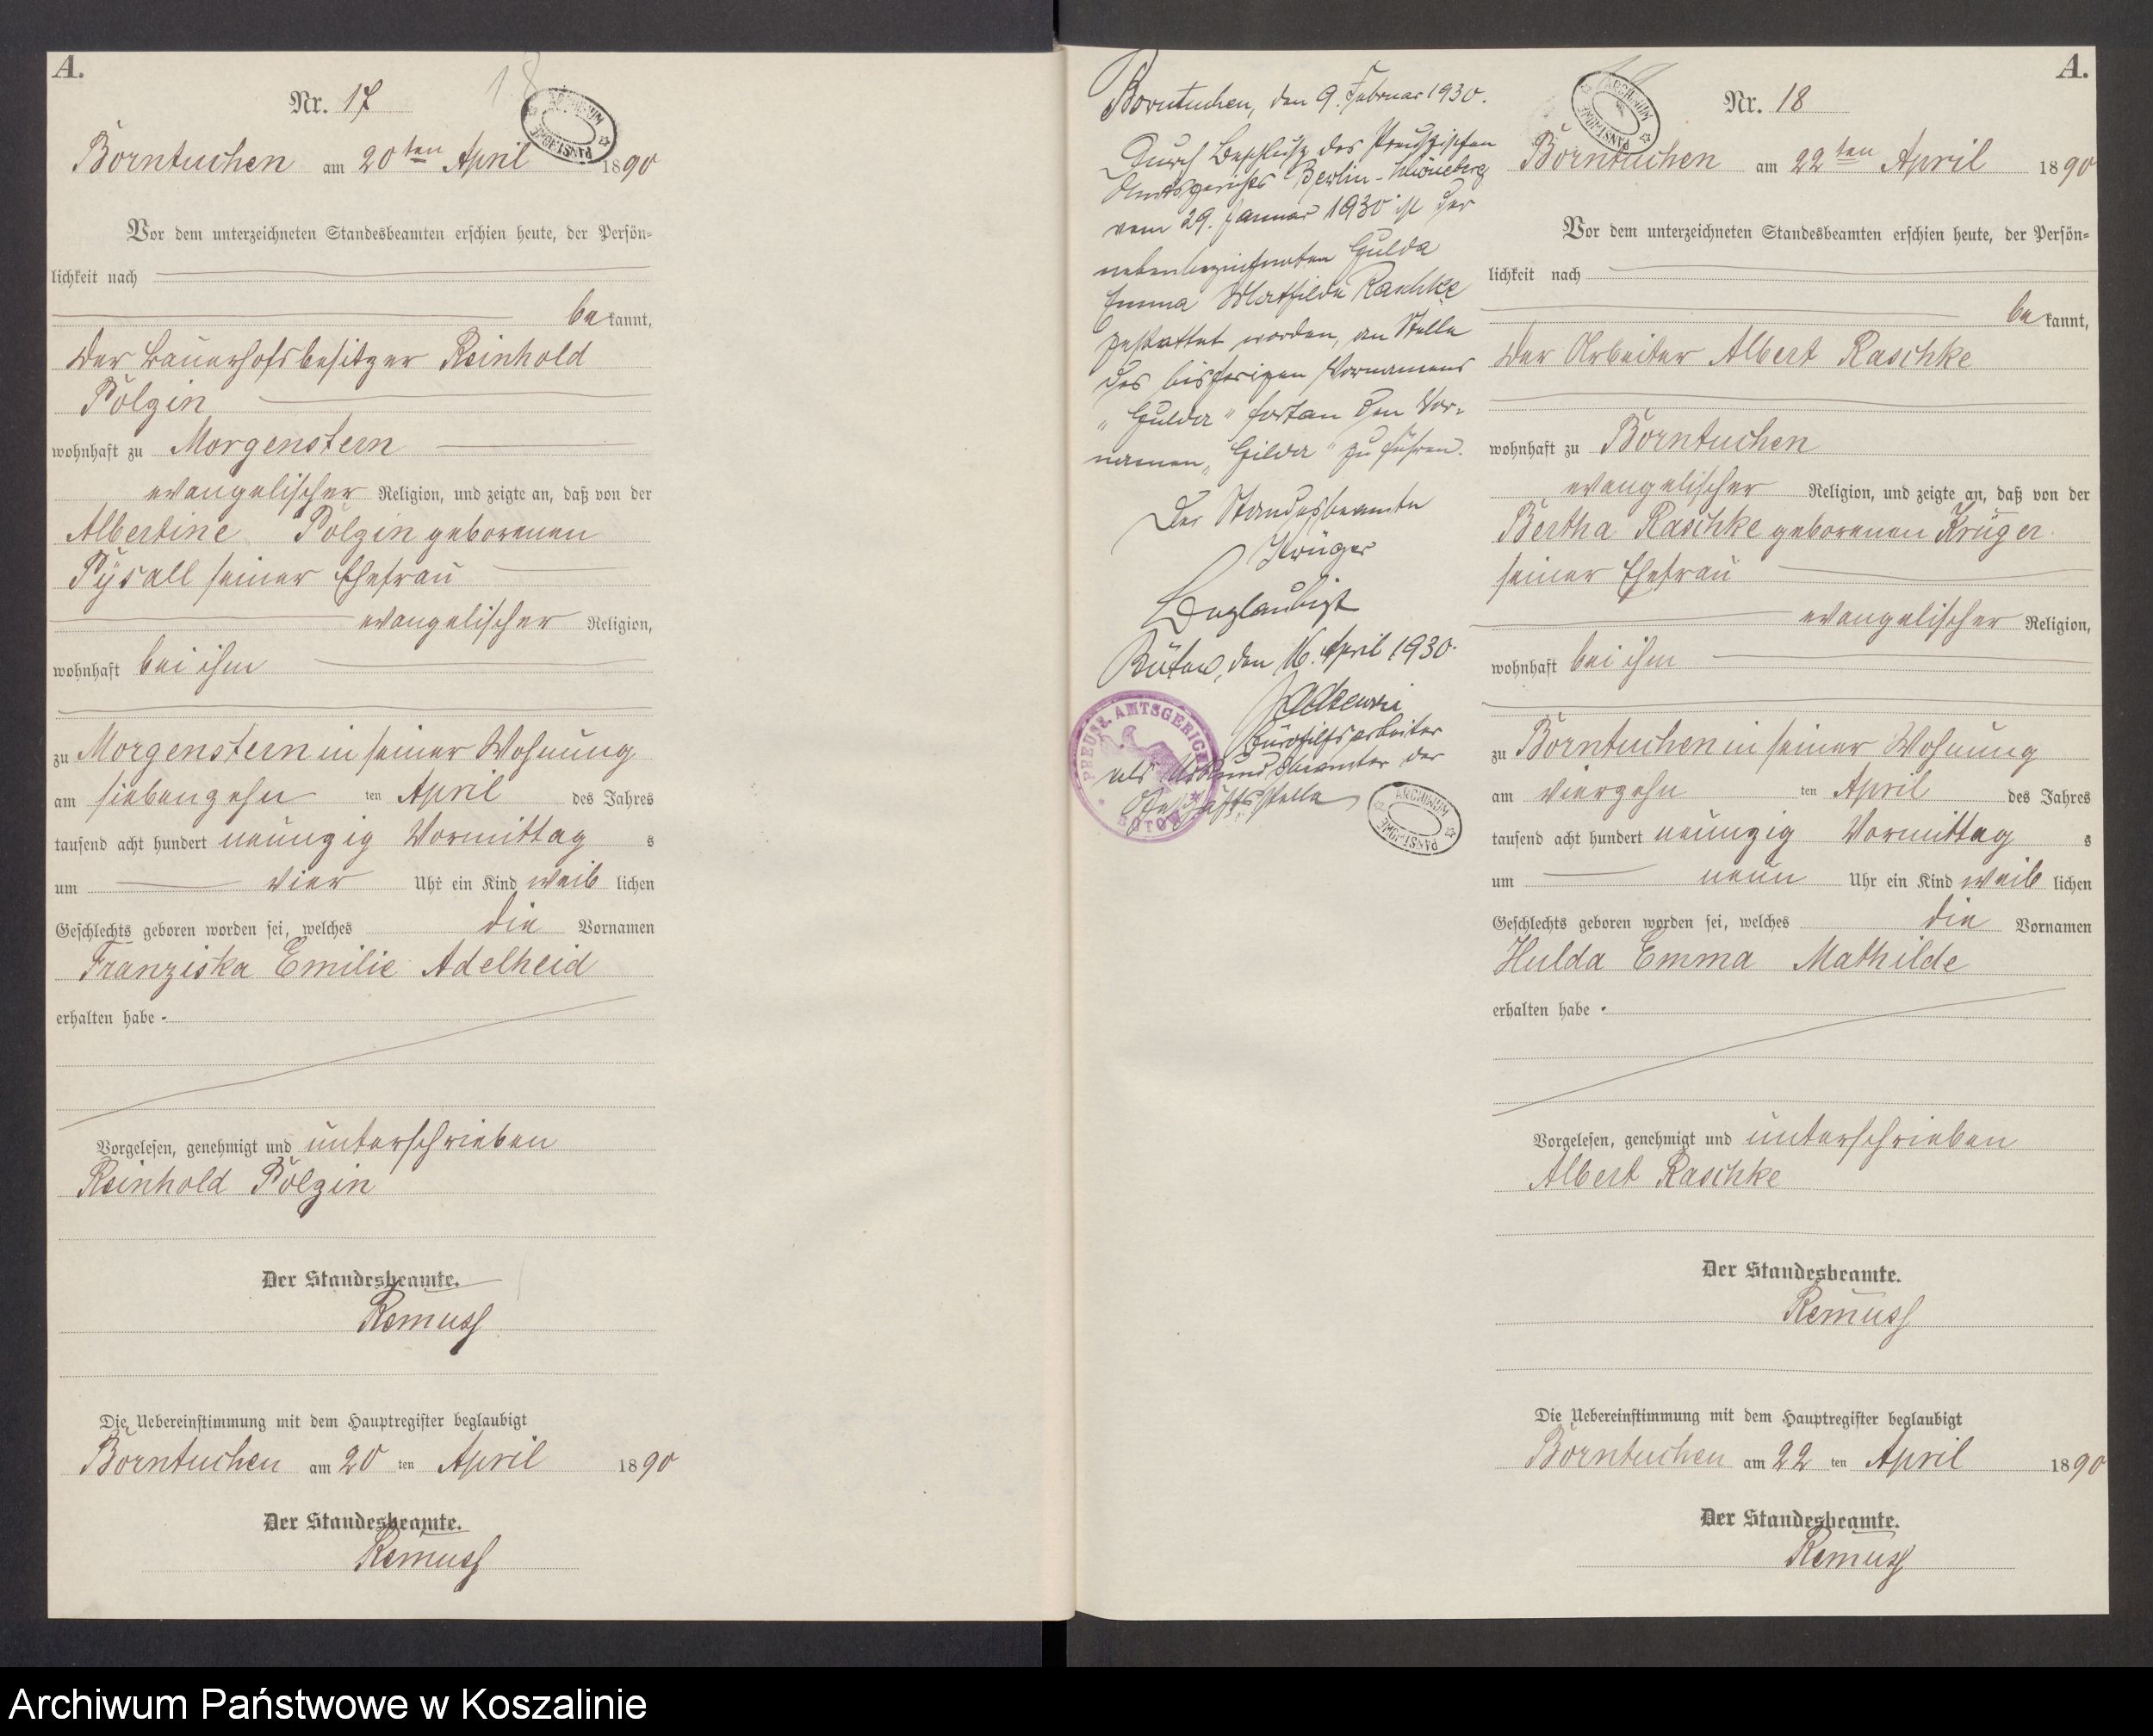 A.
Nr. 17
18
ARCHIWUM PAŃSTWOWE
Borntuchen am 20ten April 1890
Vor dem unterzeichneten Standesbeamten erschien heute, der Persön=
lichkeit nach
bekannt,
der Bauerhofsbesitzer Reinhold
Polzin
wohnhaft zu Morgenstern
evangelischer Religion, und zeigte an, daß von der
Albertine Polzin geborenen
Pysall seiner Ehefrau
evangelischer Religion,
wohnhaft bei ihm
zu Morgenstern in seiner Wohnung
am siebenzehn ten April des Jahres
tausend acht hundert neunzig Vormittag s
um vier Uhr ein Kind weib lichen
Geschlechts geboren worden sei, welches die Vornamen
Franziska Emilie Adelheid
erhalten habe.
Vorgelesen, genehmigt und unterschrieben
Reinhold Polzin
Der Standesbeamte.
Remuss
Die Uebereinstimmung mit dem Hauptregister beglaubigt
Borntuchen am 20 ten April 1890
Der Standesbeamte.
Remuss
Borntuchen, den 9. Februar 1930.
Durch Beschluß des Preußischen
Amtsgerichts Berlin-Schöneberg
vom 29. Januar 1930 ist der
nebenbezeichneten Hulda
Emma Mathilde Raschke
gestattet worden, an Stelle
des bisherigen Vornamens
"Hulda" fortan den Vor-
namen "Hilda" zu führen.
Der Standesbeamte
Krüger
Beglaubigt
Bütow, den 16. April 1930.
Bürohilfsarbeiter
als Urkundsbeamter der
Geschäftsstelle
PREUSS. AMTSGERICHT BÜTOW
ARCHIWUM PAŃSTWOWE
A.
ARCHIWUM PAŃSTWOWE
Nr. 18
Borntuchen am 22ten April 1890
Vor dem unterzeichneten Standesbeamten erschien heute, der Persön=
lichkeit nach
bekannt,
der Arbeiter Albert Raschke
wohnhaft zu Borntuchen
evangelischer Religion, und zeigte an, daß von der
Bertha Raschke geborenen Krüger
seiner Ehefrau
evangelischer Religion,
wohnhaft bei ihm
zu Borntuchen in seiner Wohnung
am vierzehn ten April des Jahres
tausend acht hundert neunzig Vormittag s
um neun Uhr ein Kind weib lichen
Geschlechts geboren worden sei, welches die Vornamen
Hulda Emma Mathilde
erhalten habe.
Vorgelesen, genehmigt und unterschrieben
Albert Raschke
Der Standesbeamte.
Remuss
Die Uebereinstimmung mit dem Hauptregister beglaubigt
Borntuchen am 22 ten April 1890
Der Standesbeamte.
Remuss
Archiwum Państwowe w Koszalinie